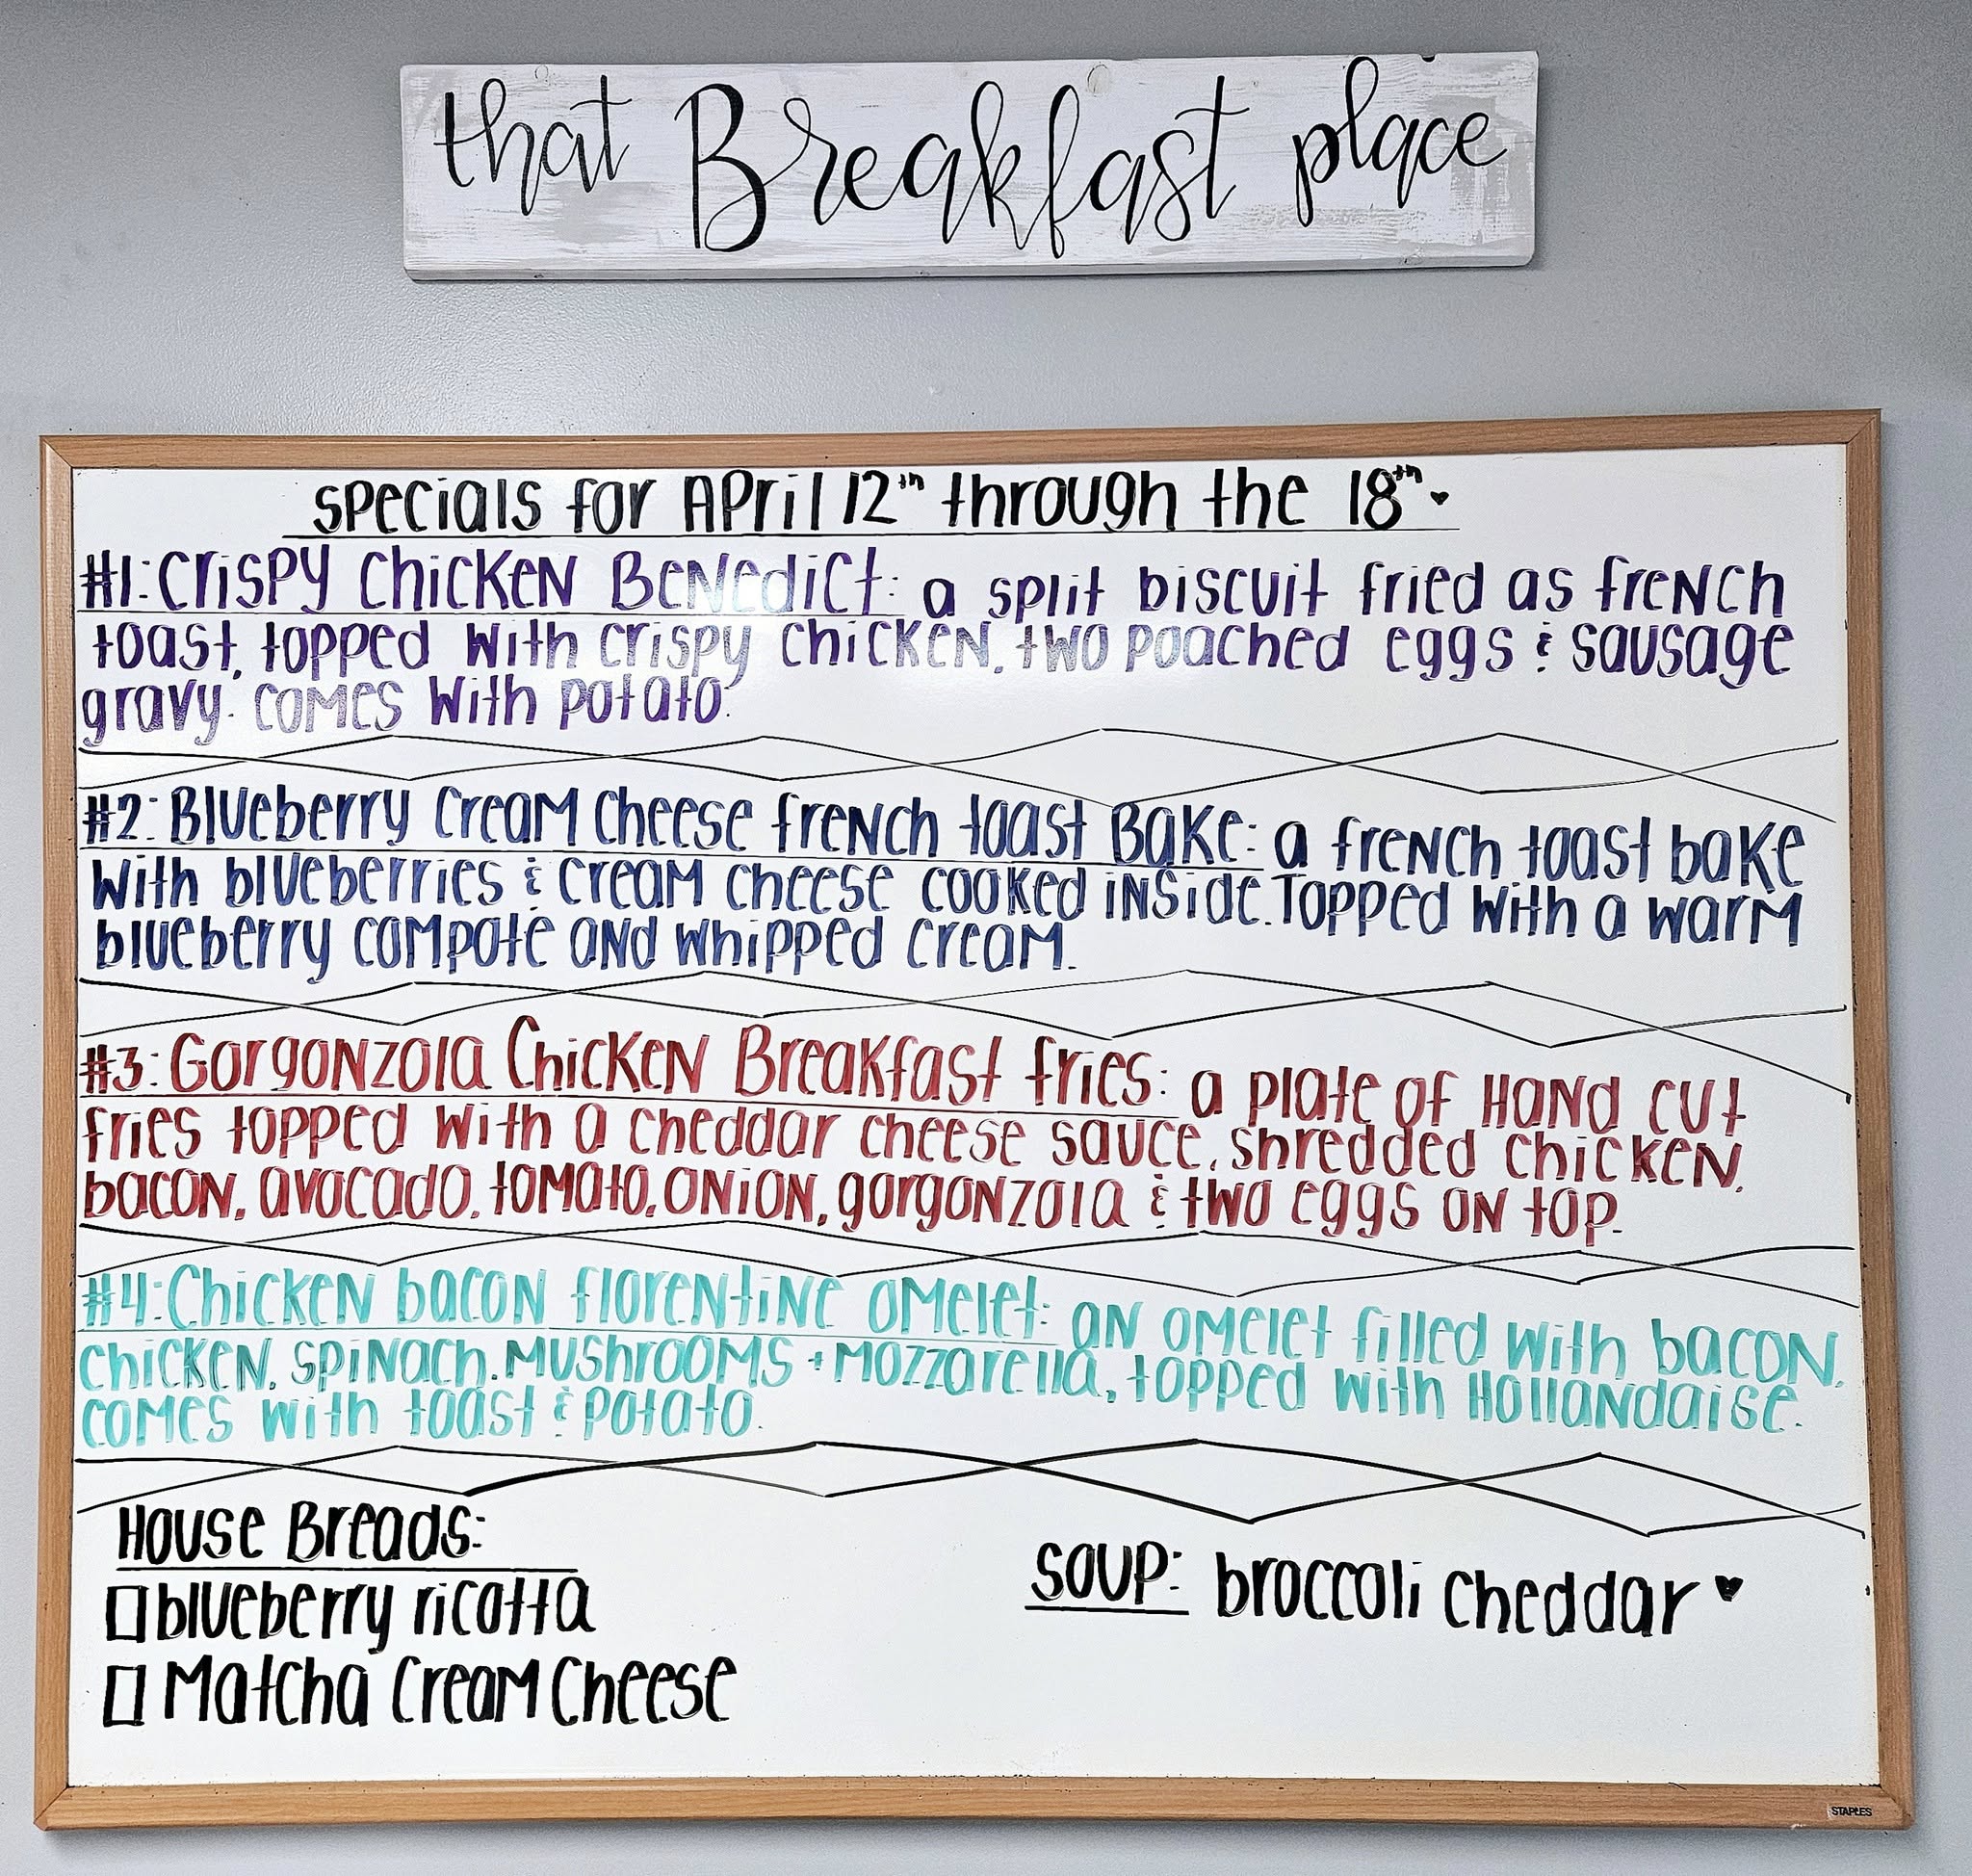 that Breakfast place
specials for April 12th through the 18th ♥
#1: Crispy Chicken Benedict: a split biscuit fried as french
toast, topped with crispy chicken, two poached eggs & sausage
gravy. comes with potato.
#2: Blueberry cream cheese french toast Bake: a french toast bake
with blueberries & cream cheese cooked inside. Topped with a warm
blueberry compote and whipped cream.
#3: Gorgonzola Chicken Breakfast fries: a plate of hand cut
fries topped with a cheddar cheese sauce, shredded chicken,
bacon, avocado, tomato, onion, gorgonzola & two eggs on top.
#4: Chicken bacon florentine omelet: an omelet filled with bacon,
chicken, spinach, mushrooms + mozzarella, topped with hollandaise.
comes with toast & potato.
House Breads:
□ blueberry ricotta
□ Matcha Cream Cheese
soup: broccoli cheddar ♥
STAPLES